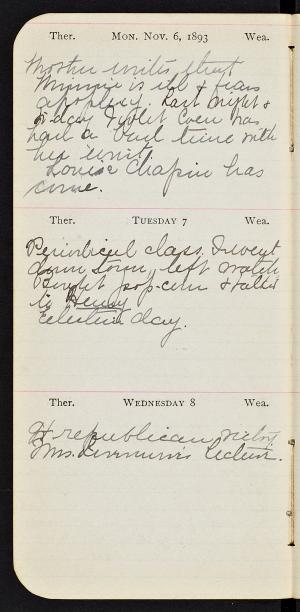 Ther. Mon. Nov. 6, 1893 Wea.
Mother writes that
Minnie is ill & fears
apoplexy. Last night &
today Violet Coen has
had a bad time with
her
Louise Chapin has
come.
Ther. Tuesday 7 Wea.
Periodical class. I went
down town, left watch
Bought pop-corn & talked
to Henry
Election day.
Ther. Wednesday 8 Wea.
republican victory
Mrs. lecture.